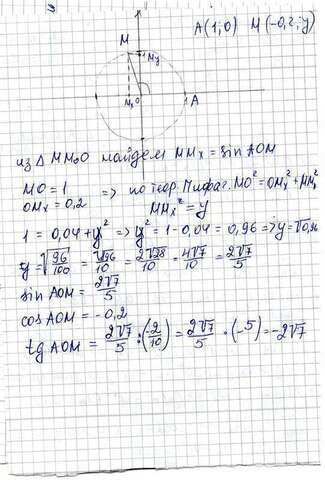 A(1;0) M(-0,2;y)
M
My
Mₓ O A
из △ MMₓO найдем MMₓ = sin AOM
MO = 1 => по теор. Пифаг. MO² = OMₓ² + MMₓ²
OMₓ = 0,2 MMₓ² = y
1 = 0,04 + y² => y² = 1 - 0,04 = 0,96 => y = √0,96
y = √96/100 = √96/10 = 2√28/10 = 4√7/10 = 2√7/5
sin AOM = 2√7/5
cos AOM = -0,2
tg AOM = 2√7/5 : (-2/10) = 2√7/5 · (-5) = -2√7